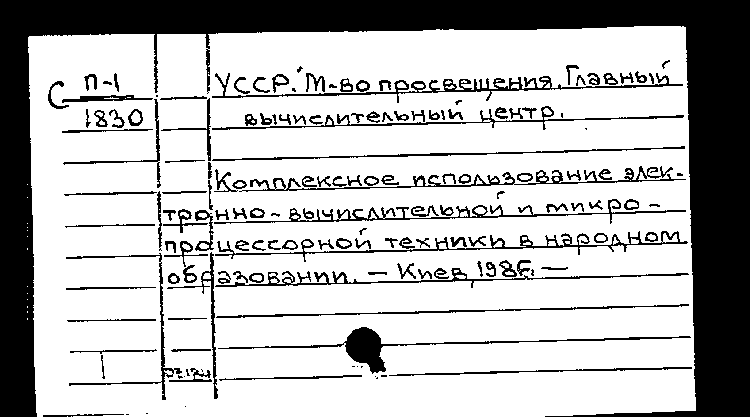 С П-1
1830
УССР. М-во просвещения. Главный
вычислительный центр.
Комплексное использование элек-
тронно-вычислительной и микро-
процессорной техники в народном
образовании. — Киев, 1986. —